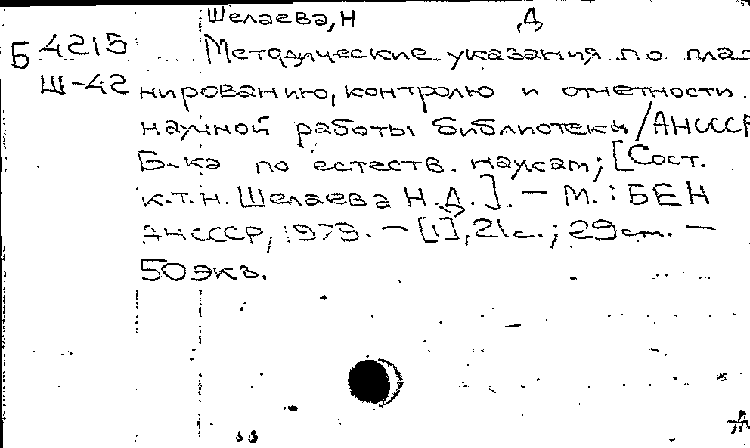 Шелаева, Н Д
Б 4215 Методические указания по пла
Ш-42 нированию, контролю и отчетности
научной работы библиотеки / АНСССР
Б-ка по естеств. наукам; [Сост.
к.т.н. Шелаева Н.Д.]. — М.: БЕН
АНСССР, 1979. — [1], 21 с.; 29 см. —
50 экз.